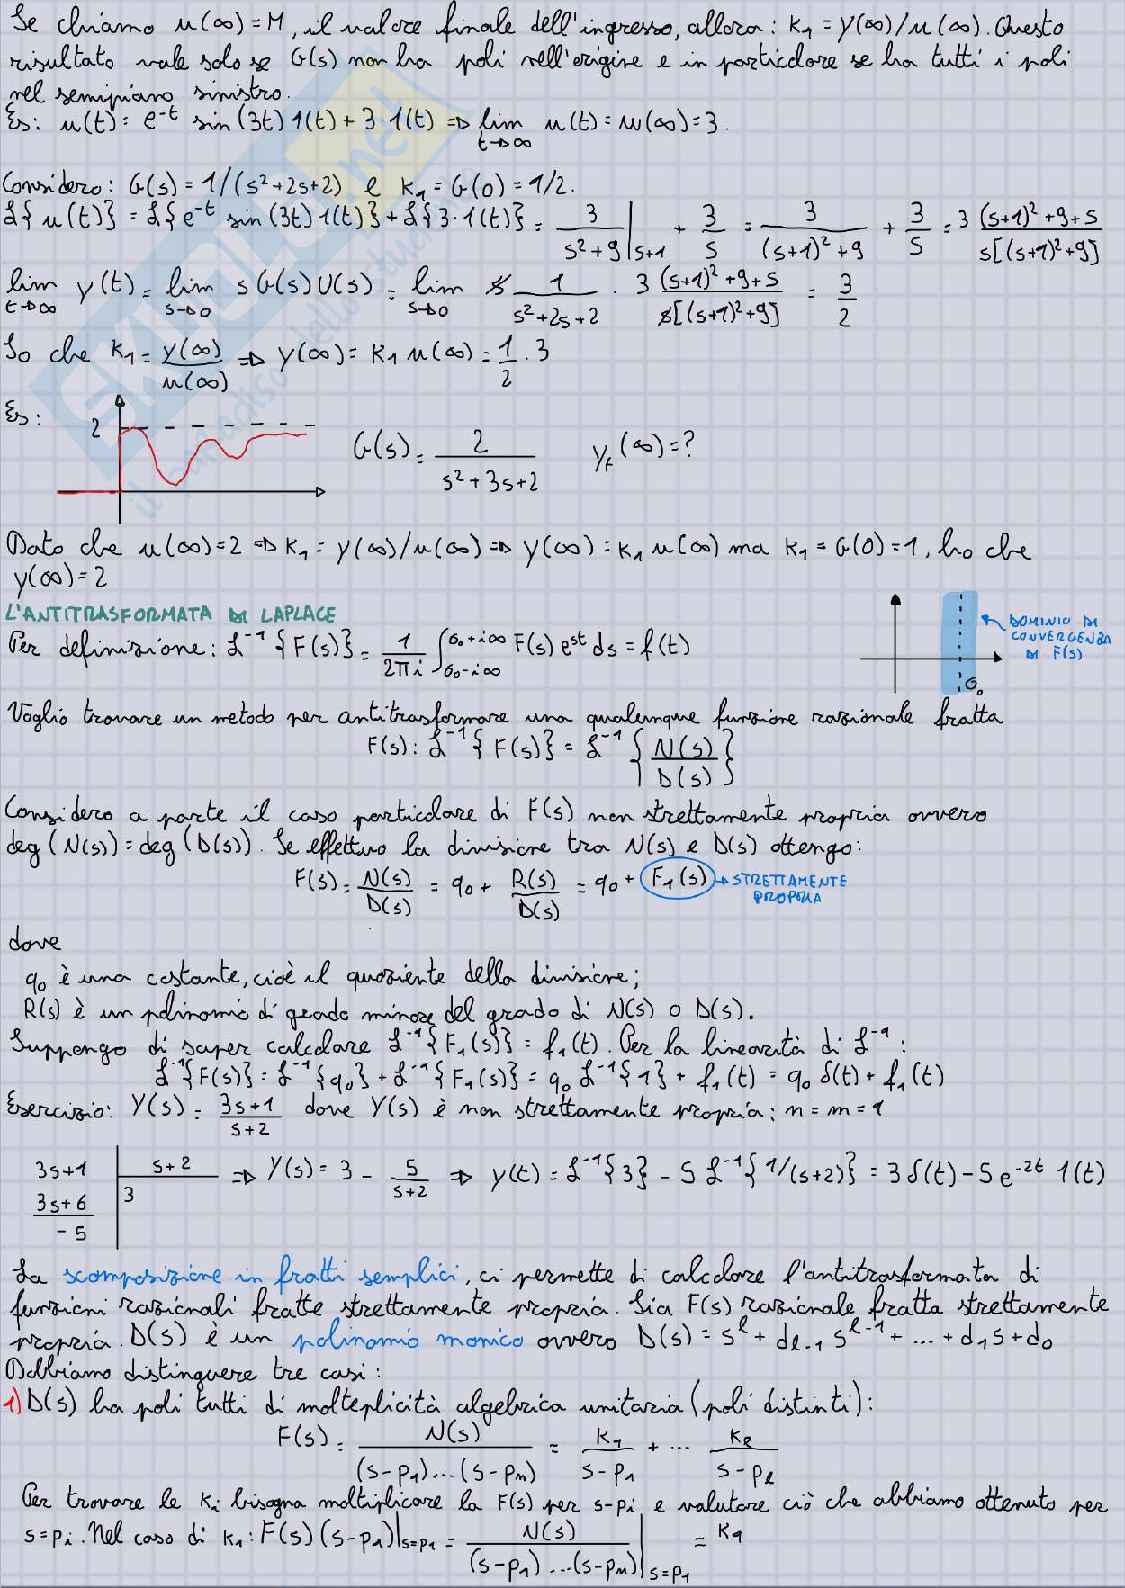 Se chiamo u(∞)=M, il valore finale dell'ingresso, allora: K₁ = y(∞)/u(∞). Questo
risultato vale solo se G(s) non ha poli nell'origine e in particolare se ha tutti i poli
nel semipiano sinistro.
Es: u(t) = e^-t sin(3t) 1(t) + 3·1(t) => lim t→∞ u(t) = u(∞) = 3.
Considero: G(s) = 1/(s²+2s+2) e K₁ = G(0) = 1/2.
ℒ{u(t)} = ℒ{e^-t sin(3t) 1(t)} + ℒ{3·1(t)} = 3/(s²+9)|s+1 + 3/s = 3/((s+1)²+9) + 3/s = 3 ((s+1)²+9+s)/(s[(s+1)²+9])
lim t→∞ y(t) = lim s→0 s G(s) U(s) = lim s→0 s 1/(s²+2s+2) · 3 ((s+1)²+9+s)/(s[(s+1)²+9]) = 3/2
So che K₁ = y(∞)/u(∞) => y(∞) = K₁ u(∞) = 1/2 · 3
Es:
2
G(s) = 2/(s²+3s+2) y_f(∞) = ?
Dato che u(∞)=2 => K₁ = y(∞)/u(∞) => y(∞) = K₁ u(∞) ma K₁ = G(0) = 1, ho che
y(∞) = 2
L'ANTITRASFORMATA DI LAPLACE
Per definizione: ℒ⁻¹{F(s)} = 1/(2πi) ∫_{σ₀-i∞}^{σ₀+i∞} F(s) e^st ds = f(t)
DOMINIO DI
CONVERGENZA
DI F(s)
σ₀
Voglio trovare un metodo per antitrasformare una qualunque funzione razionale fratta
F(s): ℒ⁻¹{F(s)} = ℒ⁻¹{N(s)/D(s)}
Considero a parte il caso particolare di F(s) non strettamente propria ovvero
deg(N(s)) = deg(D(s)). Se effettuo la divisione tra N(s) e D(s) ottengo:
F(s) = N(s)/D(s) = q₀ + R(s)/D(s) = q₀ + F₁(s) → STRETTAMENTE
PROPRIA
dove
q₀ è una costante, cioè il quoziente della divisione;
R(s) è un polinomio di grado minore del grado di N(s) o D(s).
Suppongo di saper calcolare ℒ⁻¹{F₁(s)} = f₁(t). Per la linearità di ℒ⁻¹:
ℒ⁻¹{F(s)} = ℒ⁻¹{q₀} + ℒ⁻¹{F₁(s)} = q₀ ℒ⁻¹{1} + f₁(t) = q₀ δ(t) + f₁(t)
Esercizio: Y(s) = (3s+1)/(s+2) dove Y(s) è non strettamente propria: n = m = 1
3s+1 | s+2 => Y(s) = 3 - 5/(s+2) => y(t) = ℒ⁻¹{3} - 5 ℒ⁻¹{1/(s+2)} = 3 δ(t) - 5 e^-2t 1(t)
3s+6 | 3
-5
La scomposizione in fratti semplici, ci permette di calcolare l'antitrasformata di
funzioni razionali fratte strettamente propria. Sia F(s) razionale fratta strettamente
propria. D(s) è un polinomio monico ovvero D(s) = s^l + d_{l-1} s^{l-1} + ... + d₁s + d₀
Dobbiamo distinguere tre casi:
1) D(s) ha poli tutti di molteplicità algebrica unitaria (poli distinti):
F(s) = N(s)/((s-p₁)...(s-pₙ)) = K₁/(s-p₁) + ... K_l/(s-p_l)
Per trovare le Kᵢ bisogna moltiplicare la F(s) per s-pᵢ e valutare ciò che abbiamo ottenuto per
s=pᵢ. Nel caso di K₁: F(s)(s-p₁)|s=p₁ = N(s)/((s-p₁)...(s-pₙ))|s=p₁ = K₁